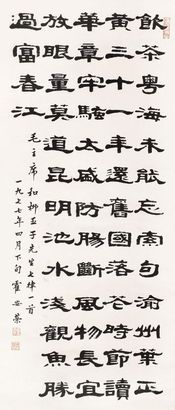 飲茶粵海未能忘索句渝州葉正
黃三十一年還舊國落花時節讀
華章牢騷太盛防腸斷風物長宜
放眼量莫道昆明池水淺觀魚勝
過富春江
毛主席和柳亞子先生七律一首
一九七七年四月下旬 霍安榮